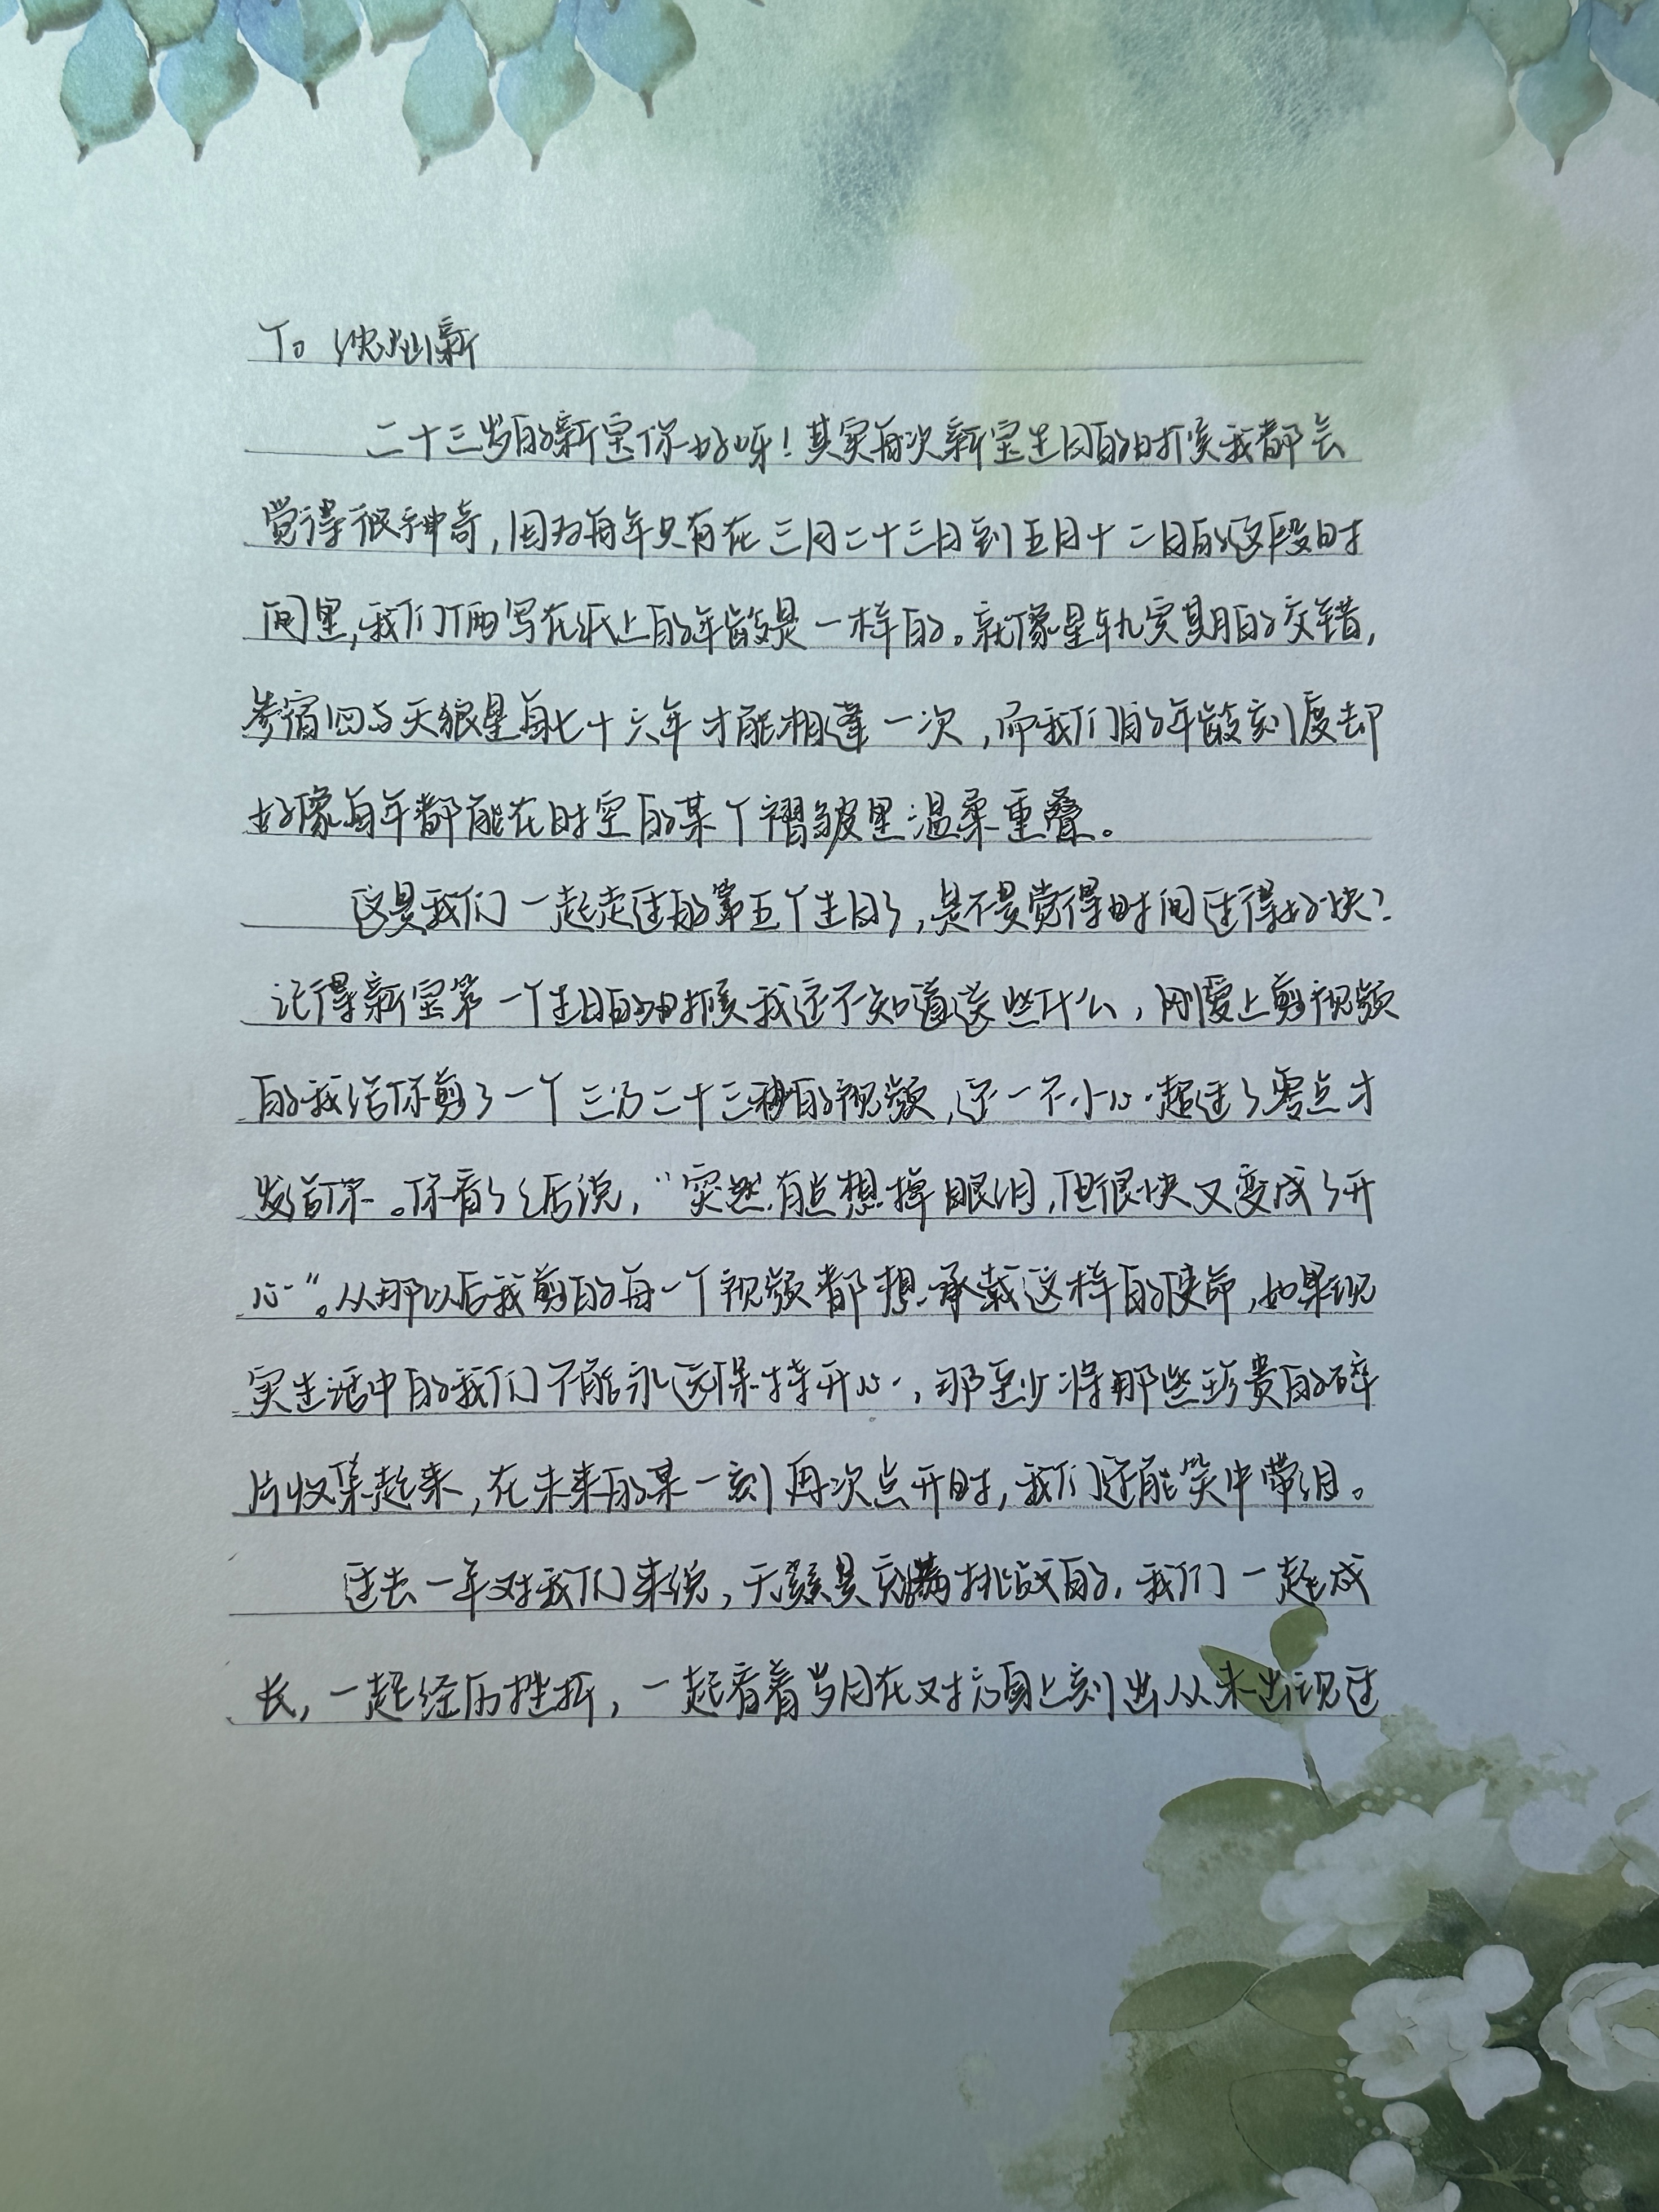 To 沈灿新
二十三岁的新宝你好呀！其实每次新宝生日的时候我都会
觉得很神奇，因为每年只有在三月二十三日到五月十二日的这段时
间里，我们俩写在纸上的年龄是一样的。就像星轨定期的交错，
参宿四与天狼星每七十六年才能相逢一次，而我们的年龄刻度却
好像每年都能在时空的某个褶皱里温柔重叠。
这是我们一起走过的第五个生日了，是不是觉得时间过得好快？
记得新宝第一个生日的时候我还不知道送些什么，刚爱上剪视频
的我给你剪了一个三分二十三秒的视频，还一不小心超过了零点才
发给你。你看了之后说，“突然有点想掉眼泪，但很快又变成了开
心”。从那以后我剪的每一个视频都想承载这样的使命，如果现
实生活中的我们不能永远保持开心，那至少将那些珍贵的碎
片收集起来，在未来的某一刻再次点开时，我们还能笑中带泪。
过去一年对我们来说，无疑是充满挑战的，我们一起成
长，一起经历挫折，一起看着岁月在对方身上刻出从未出现过